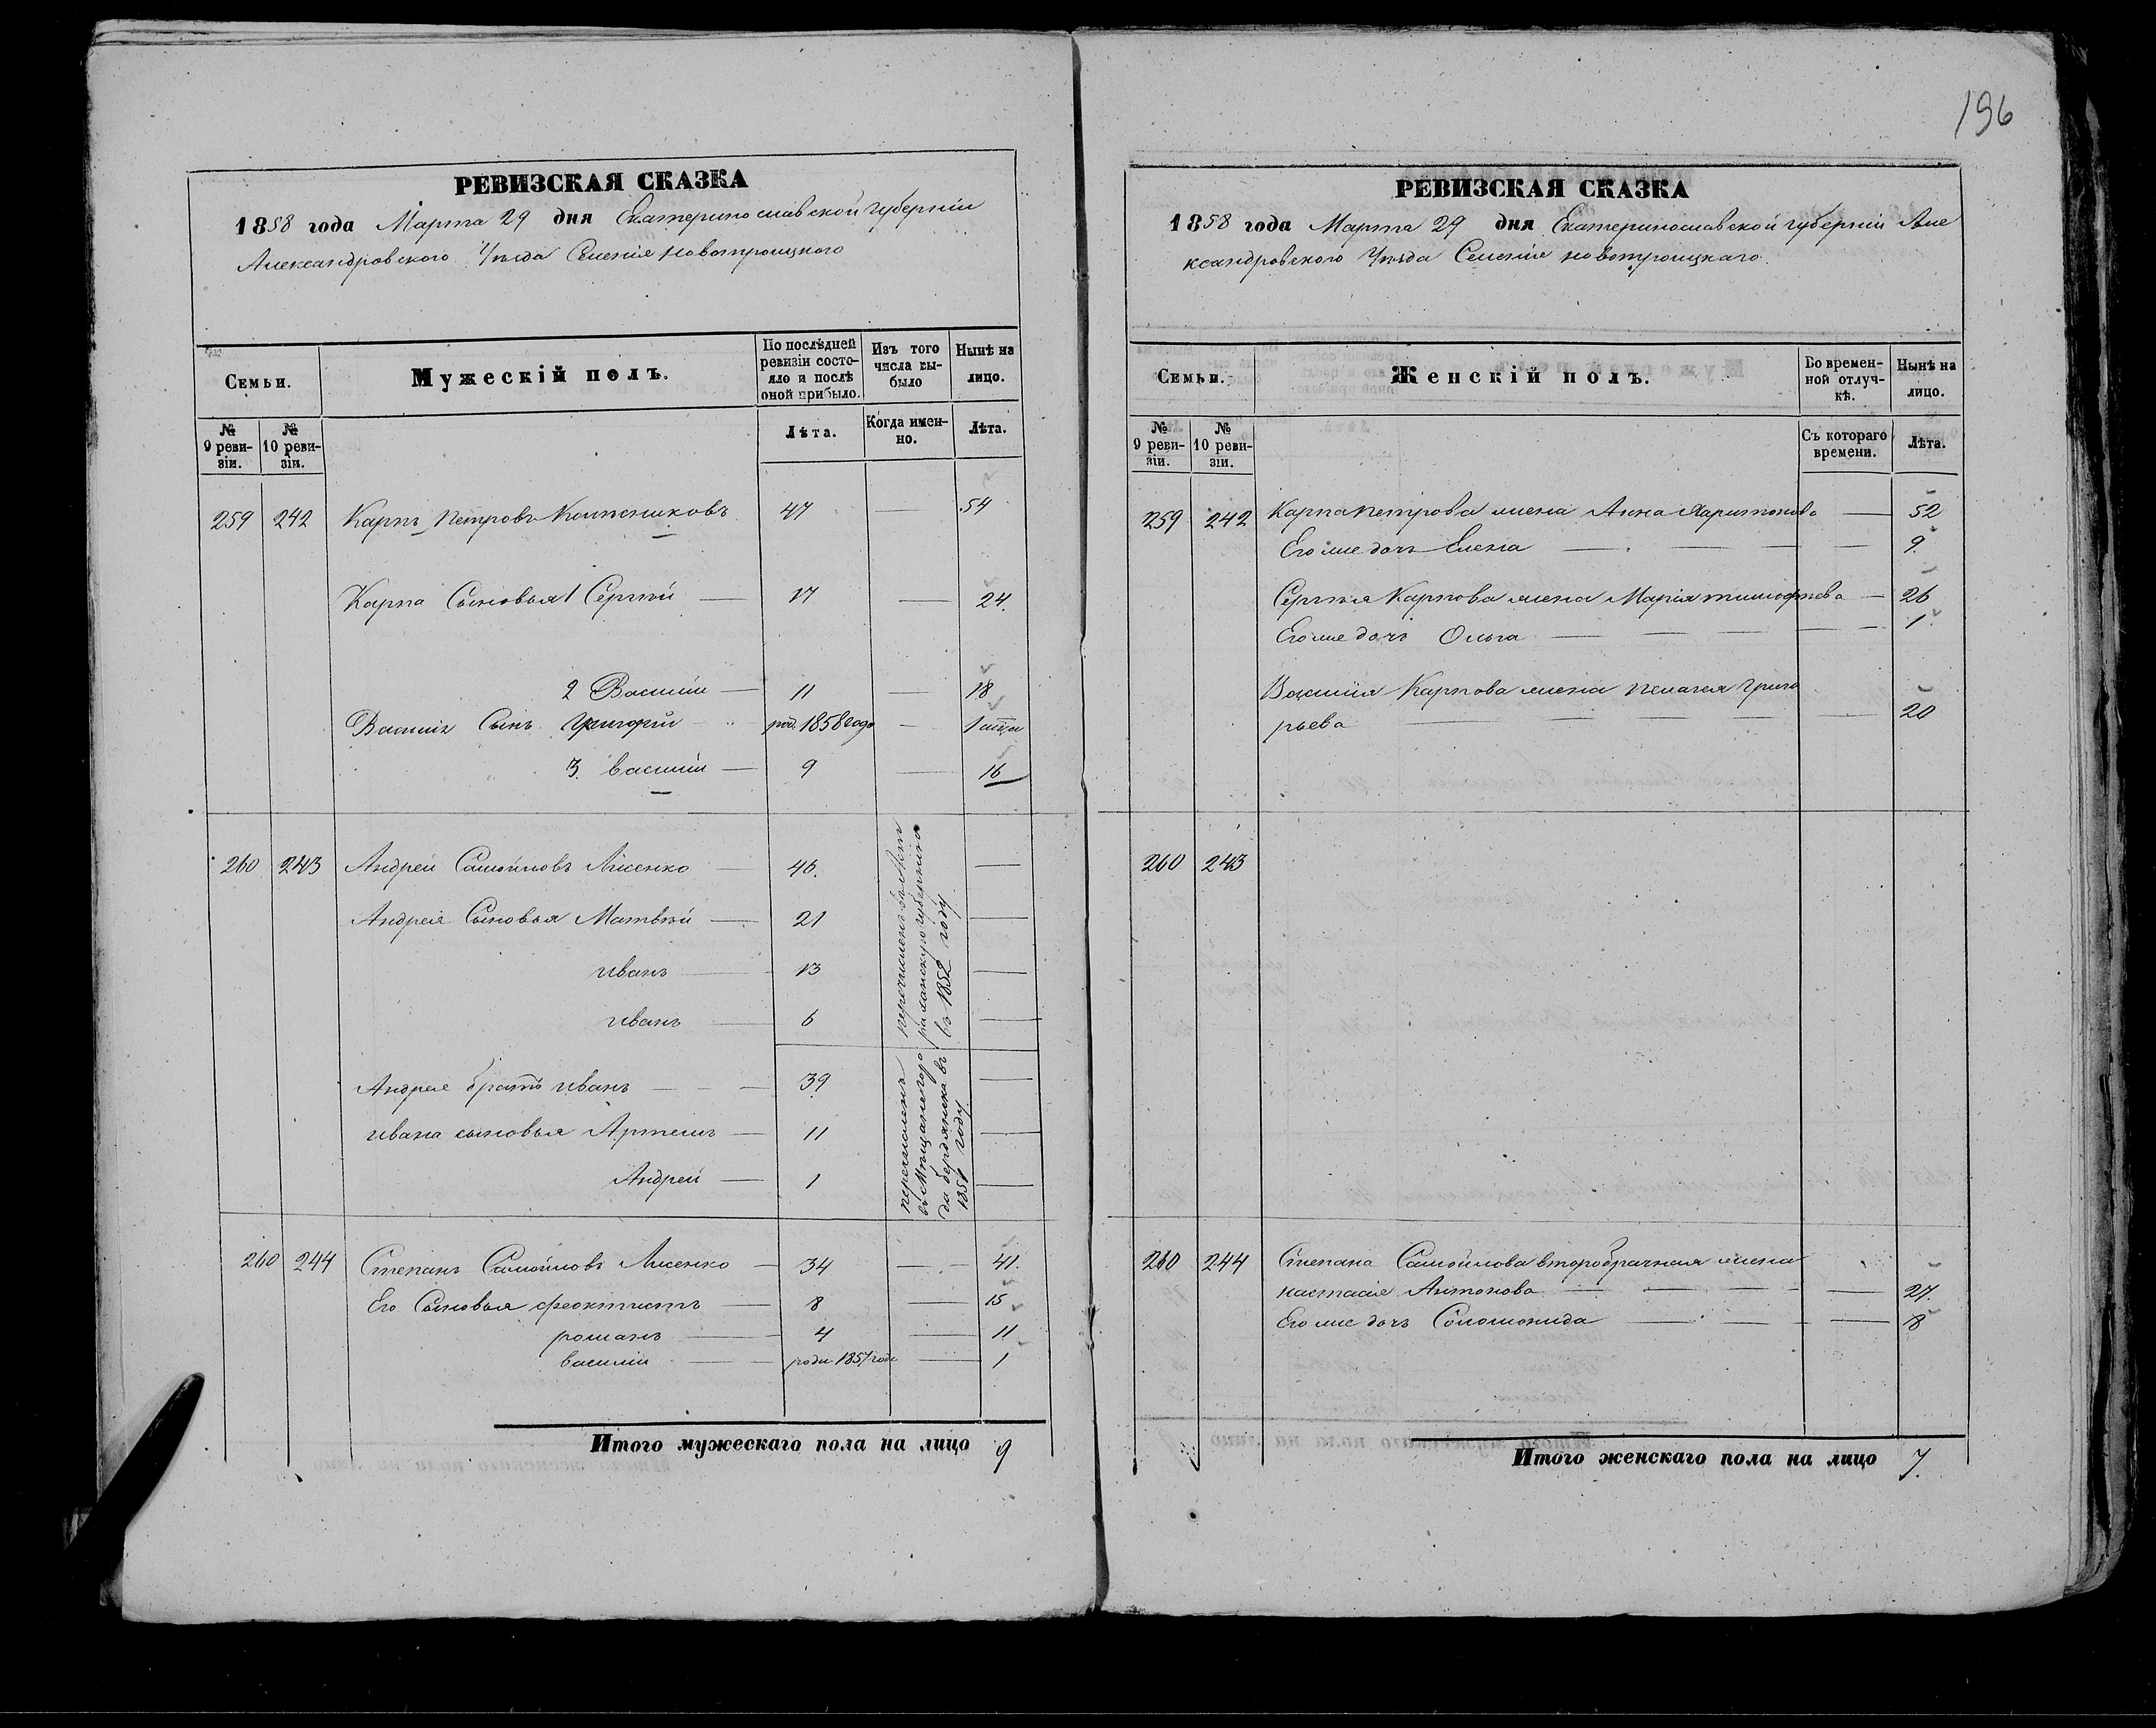 196
РЕВИЗСКАЯ СКАЗКА
1858 года Марта 29 дня Екатеринославской губерніи
Александровского Уѣзда Селенія Новотроицкого
Семьи.
Мужескій полъ.
По послѣдней ревизіи состояло и послѣ оной прибыло.
Изъ того числа выбыло
Ныиѣ на лицо.
№ 9 ревизіи.
№ 10 ревизіи.
Лѣта.
Когда именно.
Лѣта.
259 242 Карпъ Петровъ 47 — 54
Карпа Сыновья 1 Сергѣй — 17 — 24.
2 Василій — 11 — 18
Василія Сынъ Григорій род. 1858 года —
3 василій — 9 — 16
260 243 Андрей Самойловъ Лисенко — 46. —
Андрея Сыновья Матвѣй — 21 —
иванъ — 13 —
иванъ — 6 —
перечисленъ въ Аст
раханскую губернію
въ 1852 году
Андрея братъ иванъ — 39 —
ивана сыновья Артемъ — 11 —
Андрей — 1 —
перечисленъ
въ Мѣщане горо
да бердянска въ
1851 году
260 244 Степанъ Самойловъ Лисенко — 34 — 41.
Его Сыновья феоктистъ — 8 — 15
романъ — 4 — 11
василій — роди 1857 года — 1
Итого мужескаго пола на лицо 9
РЕВИЗСКАЯ СКАЗКА
1858 года Марта 29 дня Екатеринославской губерніи Але
ксандровского Уѣзда Селенія новотроицкаго.
Семьи.
Женскій полъ.
Во временной отлучкѣ.
Нынѣ на лицо.
№ 9 ревизіи.
№ 10 ревизіи.
Съ котораго времени.
Лѣта.
259 242 Карпа петрова жена Анна Харитонова — 52
Его же дочь Елена — 9.
Сергѣя Карпова жена Марія тимофѣева — 26
Его же дочь Ольга — 1
Василія Карпова жена пелагея Григо
рьева — 20
260 243
260 244 Степана Самойлова второбрачная жена
настасія Антонова — 27.
Его же дочь Соломонида — 8
Итого женскаго пола на лицо 7.